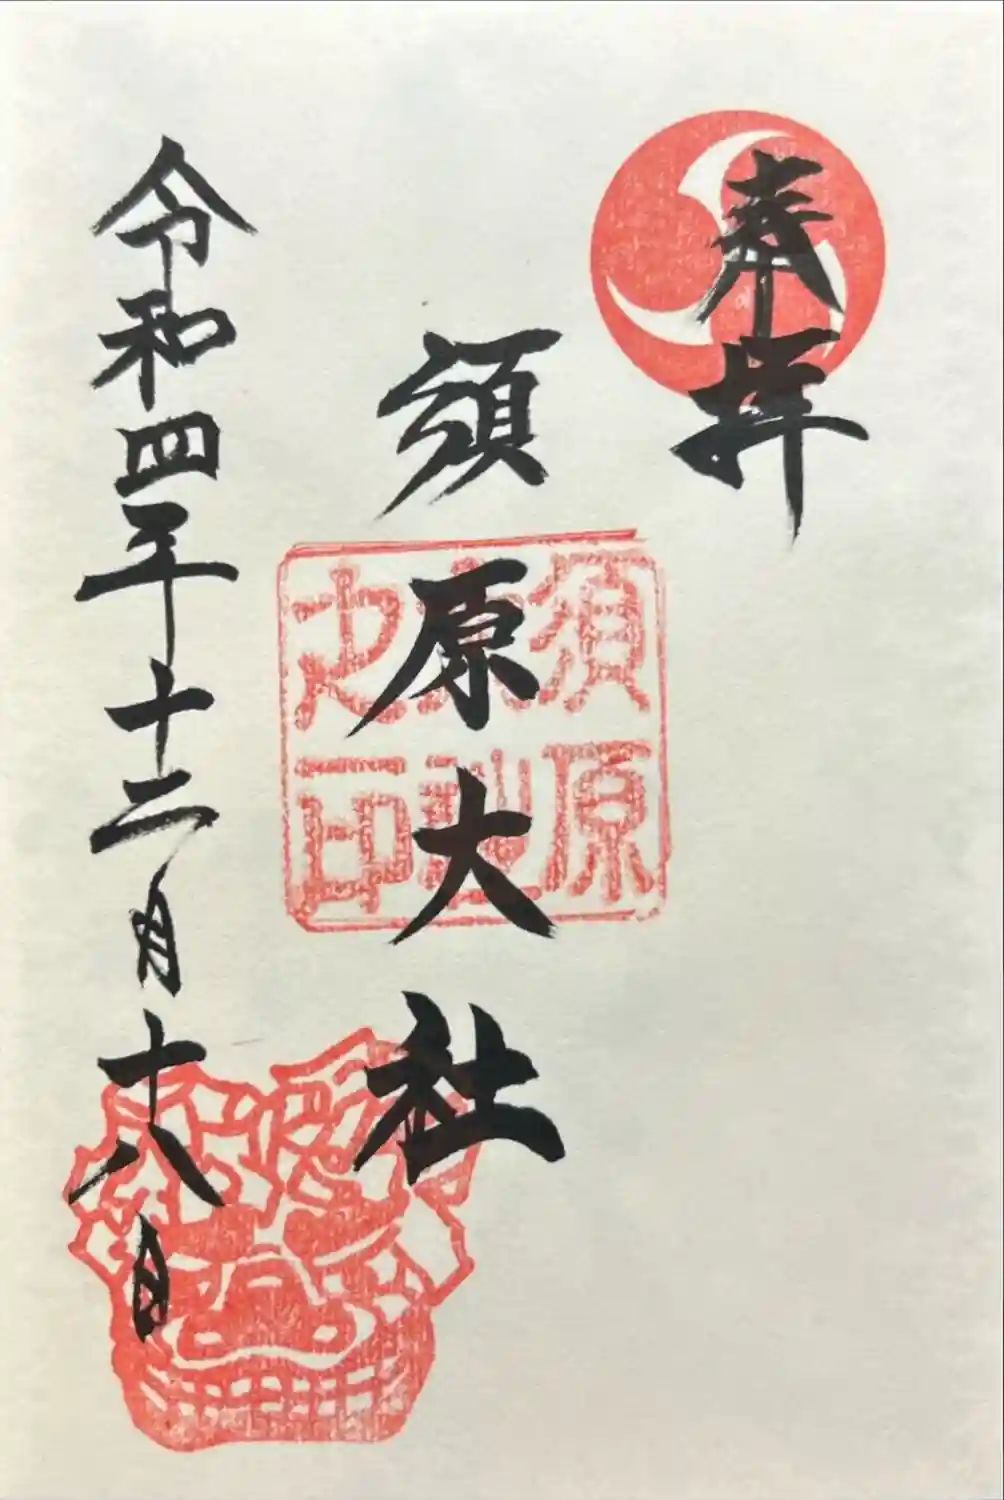 奉拝
須原大社
須原大社之印
令和四年十二月十八日